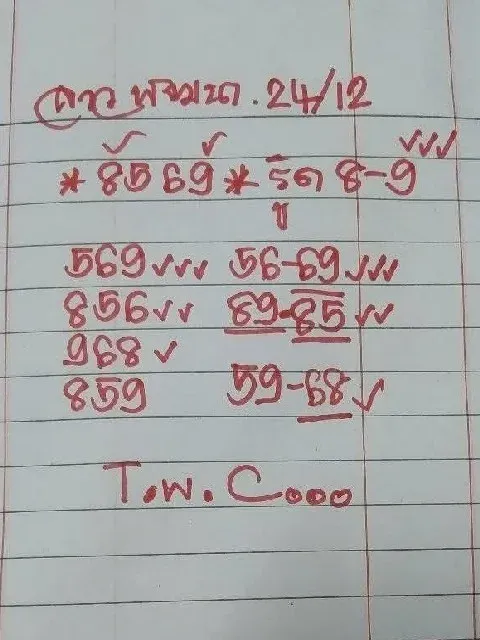 ลาว พัฒนา . 24/12
✓ ✓ ✓✓✓
* 8569 * รูด 8-9
569 ✓✓✓ 56-69 ✓✓✓
856 ✓✓ 89-85 ✓✓
968 ✓
859 59-68 ✓
T.W. Cooo